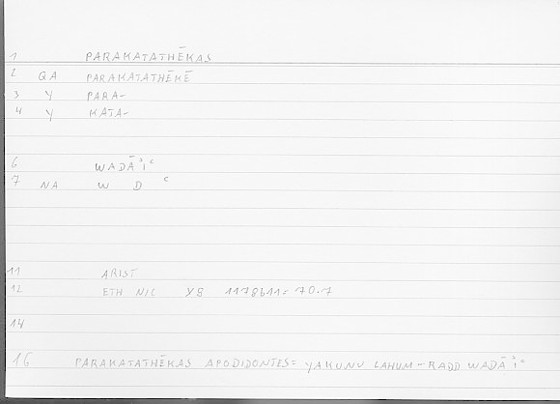 1 PARAKATATHĒKAS
2 QA PARAKATATHĒKĒ
3 Y PARA-
4 Y KATA-
6 WADĀʾIʿ
7 NA W D ʿ
11 ARIST
12 ETH NIC Y8 1178b11= 70.7
14
16 PARAKATATHĒKAS APODIDONTES= YAKUNU LAHUM-RADD WADĀʾIʿ